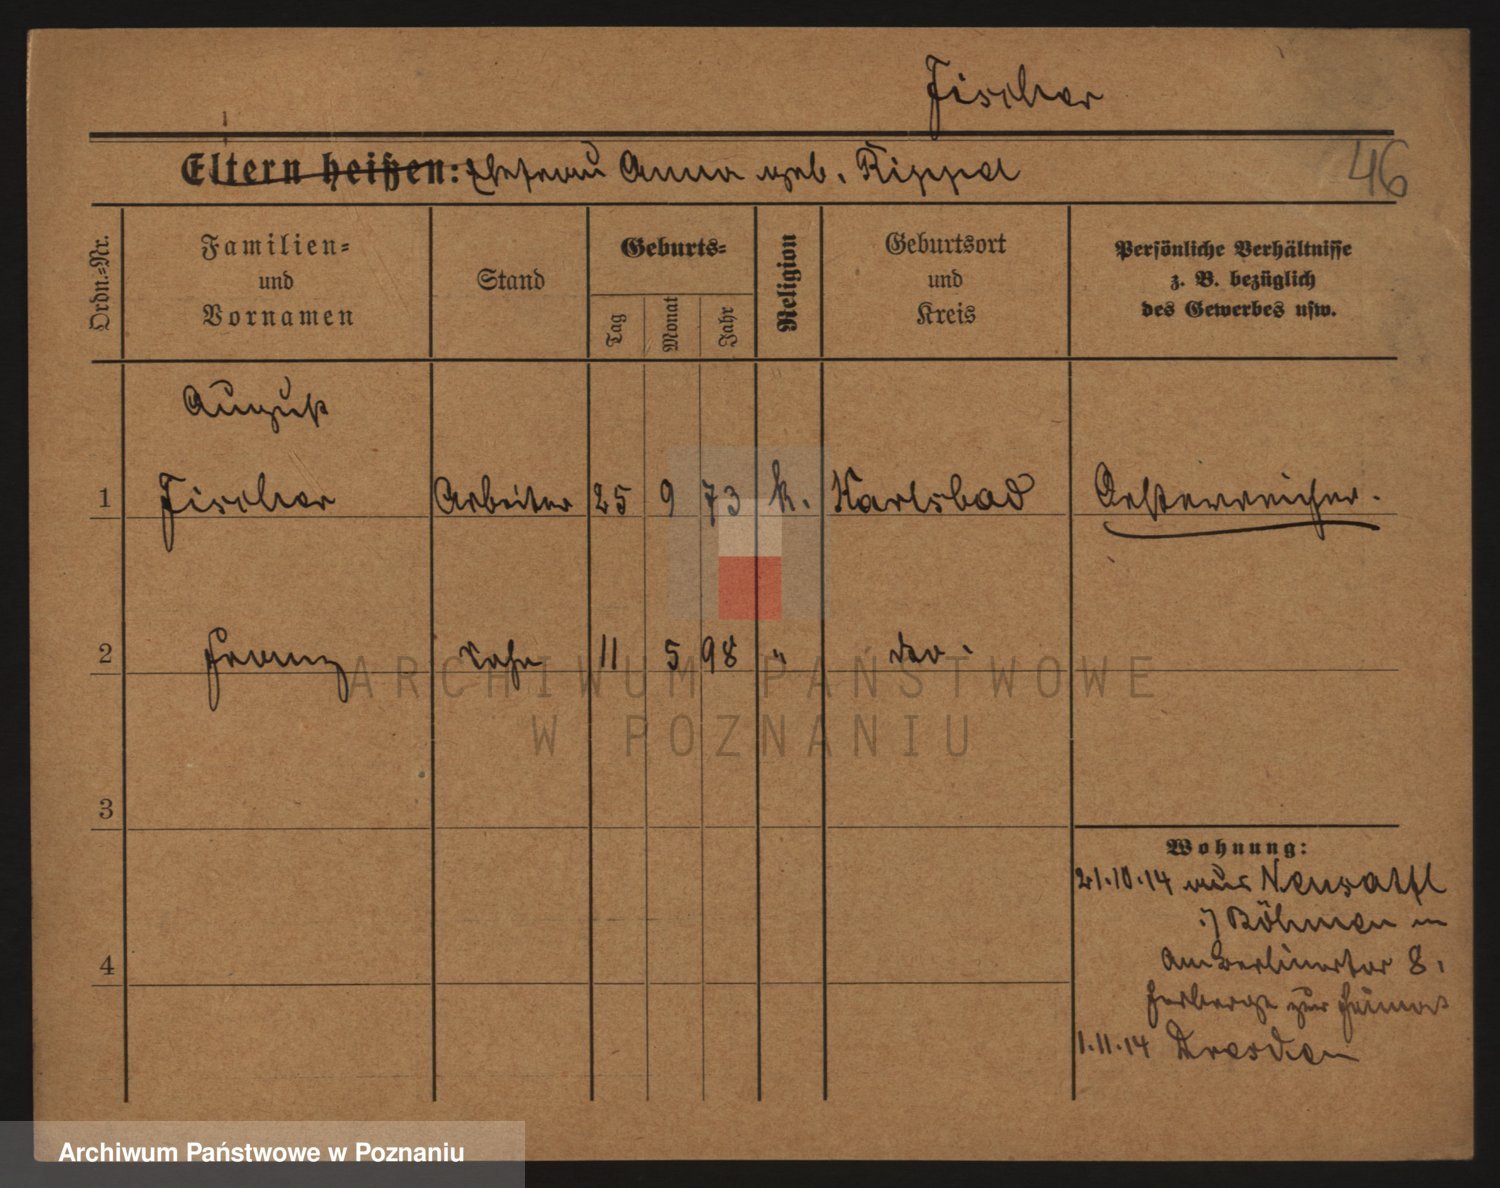 Fischer
46
Eltern heißen: Ehefrau Anna geb. Rippel
Ordn.=Nr.
Familien=
und
Vornamen
Stand
Geburts=
Tag
Monat
Jahr
Religion
Geburtsort
und
Kreis
Persönliche Verhältnisse
z. B. bezüglich
des Gewerbes usw.
August
1 Fischer Arbeiter 25 9 73 k. Karlsbad Oesterreicher.
2 Franz Sohn 11 5 98 " do.
3
4
Wohnung:
21.10.14 aus Neusattl
i/ Böhmen in
Am Berlinertor 8.
Herberge zur Heimat
1.11.14 Dresden
ARCHIWUM PAŃSTWOWE
W POZNANIU
Archiwum Państwowe w Poznaniu